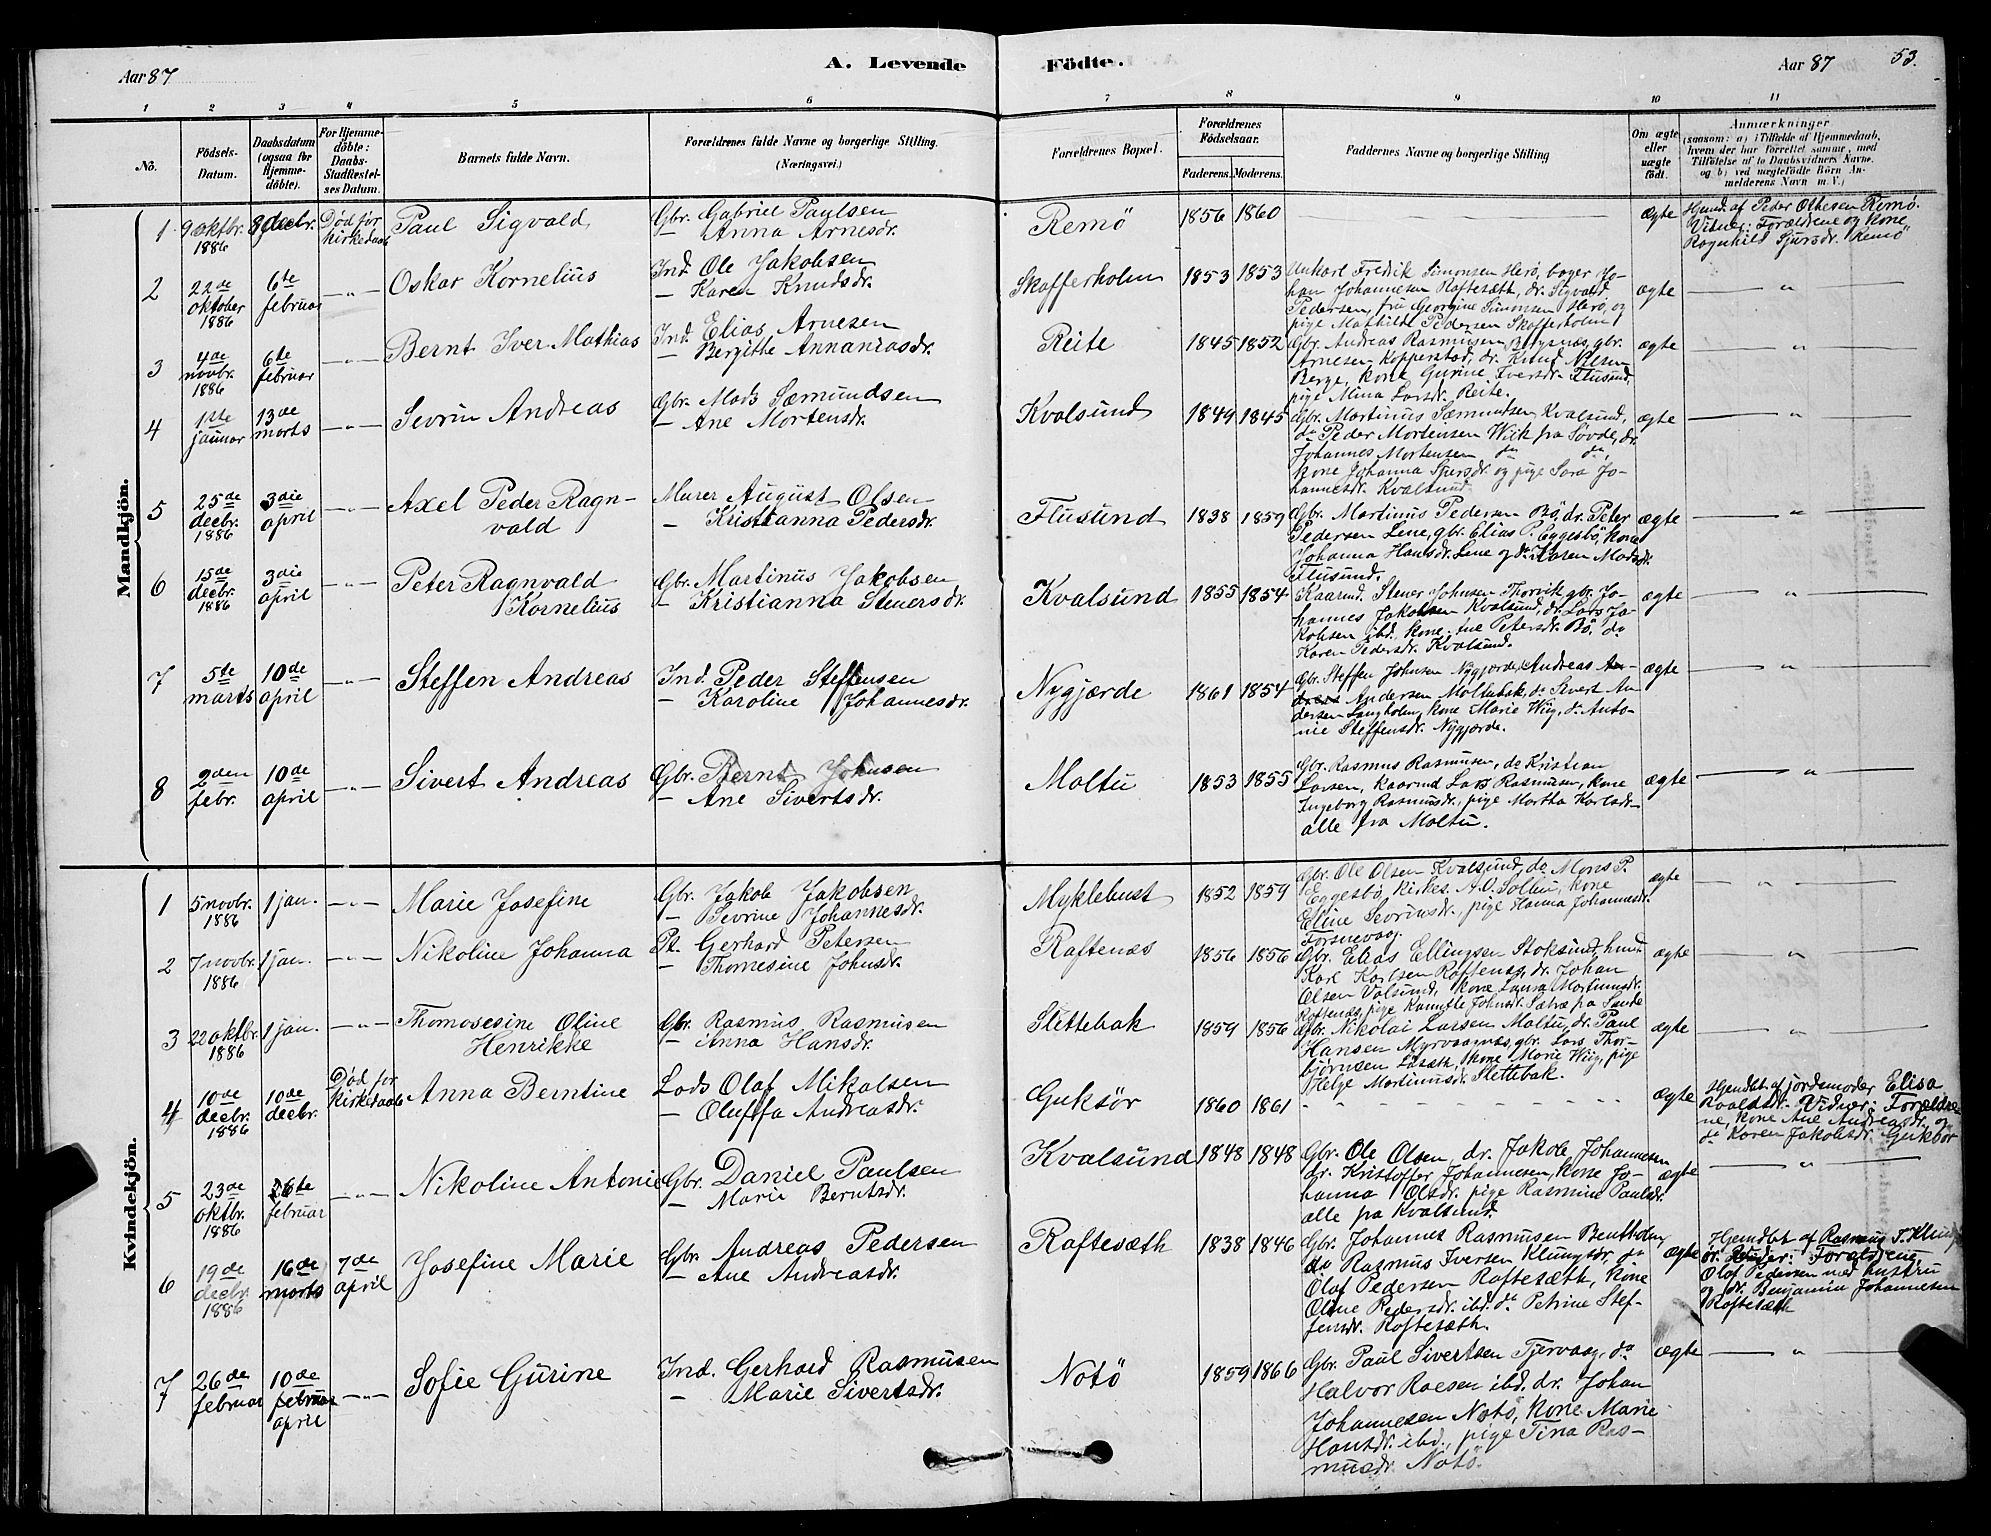 Aar 87
A. Levende Födte.
Aar 87
53.
1 2 3 4 5 6 7 8 9 10 11
No.
Födsels-
Datum.
Daabsdatum
(ogsaa for
Hjemme-
döbte).
For Hjemme-
döbte:
Daabs-
Stadfæstel-
ses Datum.
Barnets fulde Navn.
Forældrenes fulde Navne og borgerlige Stilling.
(Næringsvei.)
Forældrenes Bopæl.
Forældrenes
Födselsaar.
Faderens. Moderens.
Faddernes Navne og borgerlige Stilling
Om ægte
eller
uægte
födt.
Anmærkninger
(saasom: a) i Tilfælde af Hjemmedaab,
hvem der har forrettet samme, med
Tilföielse af to Daabsvidners Navne.
og b) ved uægtefödte Börn An-
melderens Navn m. V.)
Mandkjön.
1 9 oktbr. 1886 9 decbr. Död för kirkedaab
Paul Sigvald
Gbr. Gabriel Paulsen
— Anna Arnesdr.
Remö 1856 1860 ægte
Hjmd. af Peder Olsen Remö.
Vidner: Forældrene og kone
Ragnhild Sjursdr. Remö
2 22de oktober 1886 6te februar —„—
Oskar Kornelius
Ind. Ole Jakobsen
— Karen Knudsdr.
Skafferholm 1853 1853
Unkarl Fredrik Simonsen Herö, bager Jo-
han Johannesen Raftesæth, dr. Sigvald
Pedersen, fru Georgine Simonsen Herö, og
pige Mathilde Pedersen Skafferholm,
ægte — „ —
3 4de novbr. 1886 6te februar —„—
Bernt Iver Mathias
Ind. Elias Arnesen
— Bergithe Annaniasdr.
Reite 1845 1852
Gbr. Andreas Rasmussen Bergsnæs, gbr.
Arnesen Kopperstad, dr. Knud Nilsen
Berge, kone Gurine Iversdr. Flusund,
pige Mina Larsdr. Reite.
ægte — „ —
4 1ste januar 13de marts —„—
Sevrin Andreas
Gbr. Mads Sæmundsen
— Ane Mortensdr.
Kvalsund 1849 1845
Gbr. Martinus Sæmundsen Kvalsund,
do Peder Mortensen Wiik fra Sövde, dr.
Johannes Mortensen do do,
kone Johanna Sjursdr. og pige Sara Jo-
hannesdr. Kvalsund
ægte — „ —
5 25de decbr. 1886 3die april —„—
Axel Peder Ragn-
vald
Murer August Olsen
— Kristianna Pedersdr.
Flusund 1838 1859
Gbr. Martinus Pedersen Bö, dr. Peter
Pedersen Lene, gbr. Elias P. Eggesbö, kone
Johanna Hansdr. Lene og do Karen Madsdr.
Flusund.
ægte — „ —
6 15de decbr. 1886 3die april —„—
Peter Ragnvald
Kornelius
Gbr. Martinus Jakobsen
— Kristianna Stenersdr.
Kvalsund 1855 1854
Kaarmd. Stener Johnsen Thorvik gbr. Jo-
hannes Jakobsen Kvalsund, dr. Lars Ja-
kobsen ibd. kone Ane Petersdr. Bö, do
Karen Pedersdr. Kvalsund.
ægte — „ —
7 5te marts 10de april —„—
Steffen Andreas
Ind. Peder Steffensen
— Karoline Johannesdr.
Nygjærde 1861 1854
Gbr. Steffen Johnsen Nygjærde, Andreas An-
Andersen Moltebak, do Sivert An-
dersen Langholm, kone Marie Wiig, do Anto-
nie Steffensdr. Nygjærde.
ægte — „ —
8 2den febr. 10de april —„—
Sivert Andreas
Gbr. Bernt Johnsen
— Ane Sivertsdr.
Moltu 1853 1855
Gbr. Rasmus Rasmusen, do Kristian
Larsen, kaarmd Lars Rasmusen, kone
Ingeborg Rasmusdr., pige Martha Karlsdr.
alle fra Moltu.
ægte — „ —
Kvindekjön.
1 5 novbr. 1886 1 jan. —„—
Marie Josefine
Gbr. Jakob Jakobsen
— Sevrine Johannesdr.
Myklebust 1852 1859
Gbr. Ole Olsen Kvalsund, do Mons P.
Eggesbö, kirkes. A. O. Solhu, kone
Eline Sevrinsdr., pige Hanna Johannesdr.
Fosnevaag.
ægte — „ —
2 7 novbr. 1886 1 jan. —„—
Nikoline Johanna
Pt. Gerhard Petersen
— Thomesine Johnsdr.
Raftenæs 1856 1856
Gbr. Elias Ellingsen Stoksund, hmd
Karl Karlsen Raftenæs, dr. Johan
Olsen Volsund, kone Laura Martinusdr.
Raftenæs, pige Kanutte Johnsdr. Sætre pa Sande
ægte — „ —
3 22 oktbr. 1886 1 jan. —„—
Thomosesine Oline
Henrikke
Gbr. Rasmus Rasmusen
— Anna Hansdr.
Slettebak 1859 1856
Gbr. Nikolai Larsen Moltu, dr. Paul
Hansen Myrvaagnæs, gbr. Lars Thor-
bjørnsen Løsæth, kone Marie Wiig, pige
Helge Martinusdr. Slettebak.
ægte — „ —
4 10de decbr. 1886 10de decbr. Död for kirkedaab
Anna Berntine
Lods Olaf Mikalsen
— Oluffa Andreasdr.
Guksör 1860 1861 ægte
Hjemdbt. af jordemoder Elisa
Roaldsdr. Vidner: Forældre-
ne, kone Ane Andreasdr. og
do Karen Jakobsdr. Guksör
5 23de oktbr. 1886 26te februar —„—
Nikoline Antonie
Gbr. Daniel Paulsen
— Marie Berntsdr.
Kvalsund 1848 1848
Gbr. Ole Olsen, dr. Jakob Johannesen
dr. Kristoffer Johannesen, kone Jo-
hanna Olsdr. pige Rasmine Paulsdr.
alle pa Kvalsund.
ægte — „ —
6 19de decbr. 1886 16de marts 7de april
Josefine Marie
Gbr. Andreas Pedersen
— Ane Andreasdr.
Raftesæth 1838 1846
Gbr. Johannes Rasmusen Bentholm,
do Rasmus Iversen Klungsör, do
Olaf Pedersen Raftesæth, kone
Oline Pedersdr. ibd. do Petrine Stef-
fensdr. Raftesæth.
ægte
Hjemdbt af Rasmus I. Klungs-
ör. Vidner: Forældrene,
Olaf Pedersen med hustru
og dr. Benjamin Johannesen
Raftesæth
7 26de februar 10de februar april —„—
Sofie Gurine
Ind. Gerhard Rasmusen
— Marie Sivertsdr.
Notö 1859 1866
Gbr. Paul Sivertsen Tjervaag, do
Halvor Roesen ibd. dr. Johan
Johannesen Notö, kone Marie
Hansdr. ibd., pige Tina Ras-
musdr. Notö.
ægte — „ —